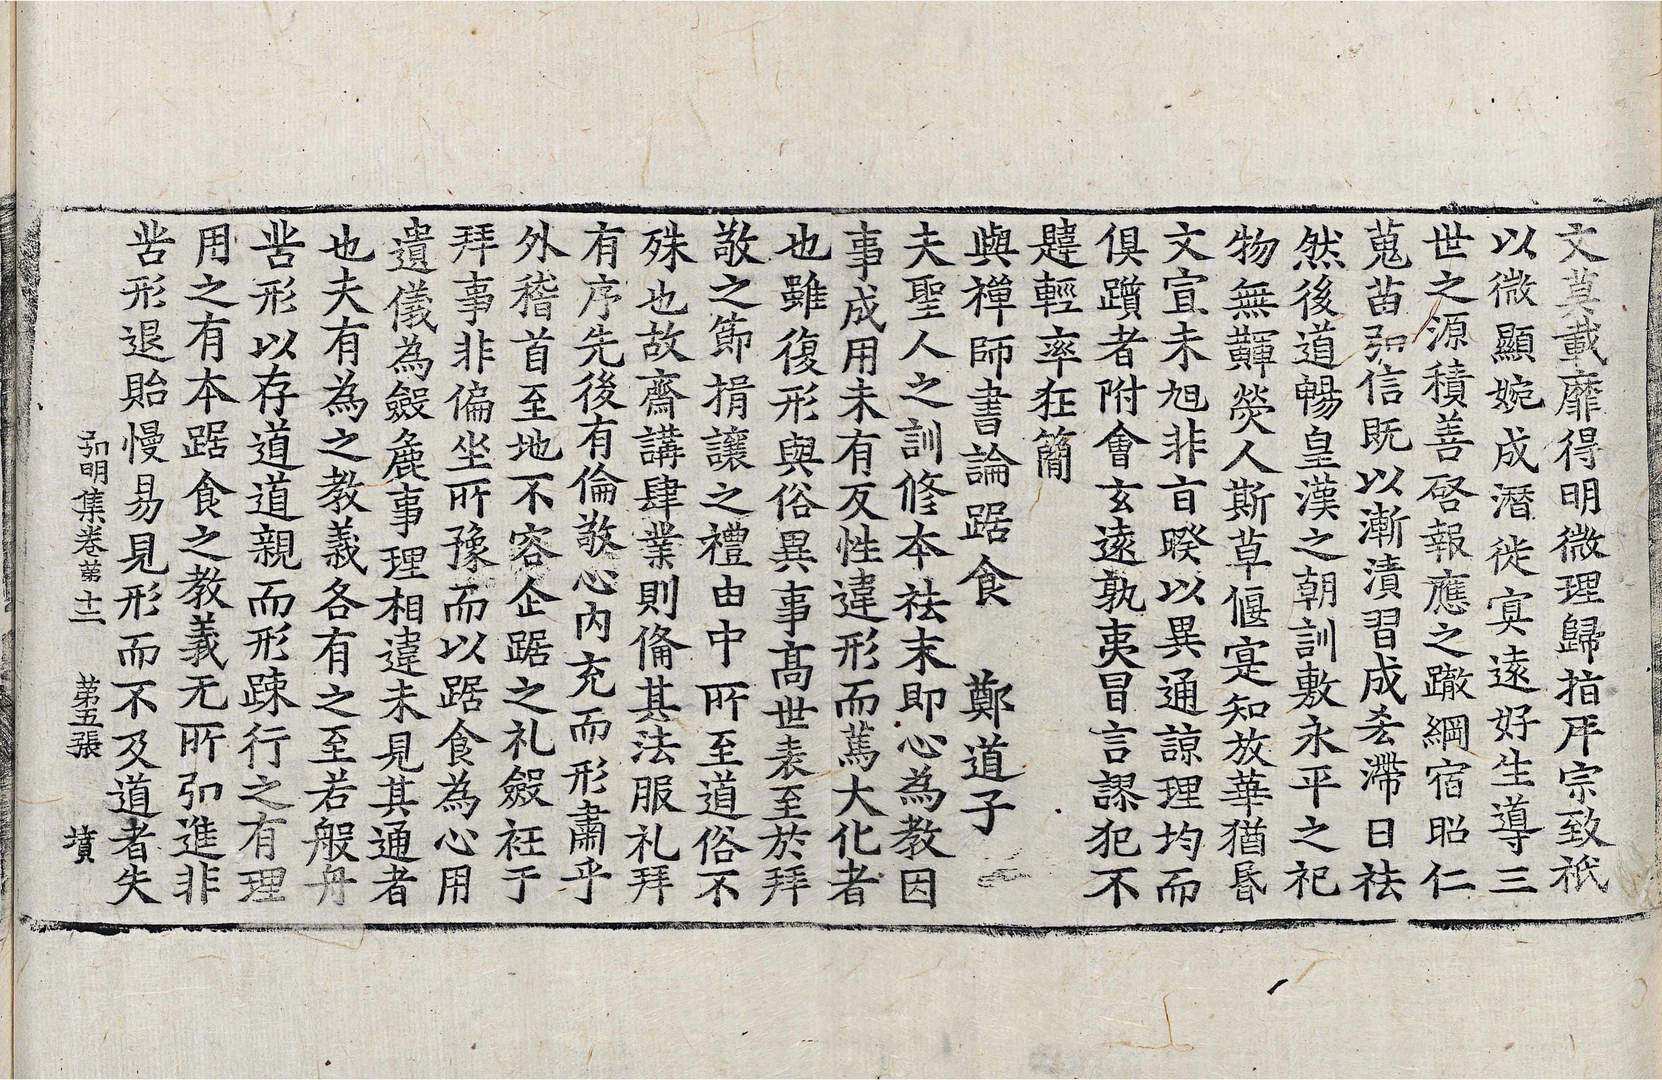 文莫載靡得明微理歸指斥宗致祇
以微顯婉成潛徙冥遠好生導三
世之源積善啓報應之轍綱宿昭仁
蒐苗弘信既以漸漬習成吝滯日祛
然後道暢皇漢之朝訓敷永平之祀
物無鞸熒人斯草偃寔知放華猶昬
文宣未旭非旨暌以異通諒理均而
俱躓者附會玄遠孰夷冒言謬犯不
韙輕率狂簡
與禪師書論踞食　鄭道子
夫聖人之訓修本祛末即心為教因
事成用未有反性違形而萬大化者
也雖復形與俗異事髙世表至於拜
敬之節揖讓之禮由中所至道俗不
殊也故齋講肆業則俻其法服礼拜
有序先後有倫敬心內充而形肅乎
外稽首至地不容企踞之礼斂衽于
拜事非偏坐所豫而以踞食為心用
遺儀為斂麁事理相違未見其通者
也夫有為之教義各有之至若般舟
苦形以存道道親而形疎行之有理
用之有本踞食之教義无所弘進非
苦形退貽慢易見形而不及道者失
弘明集卷苐十二　苐五張　墳